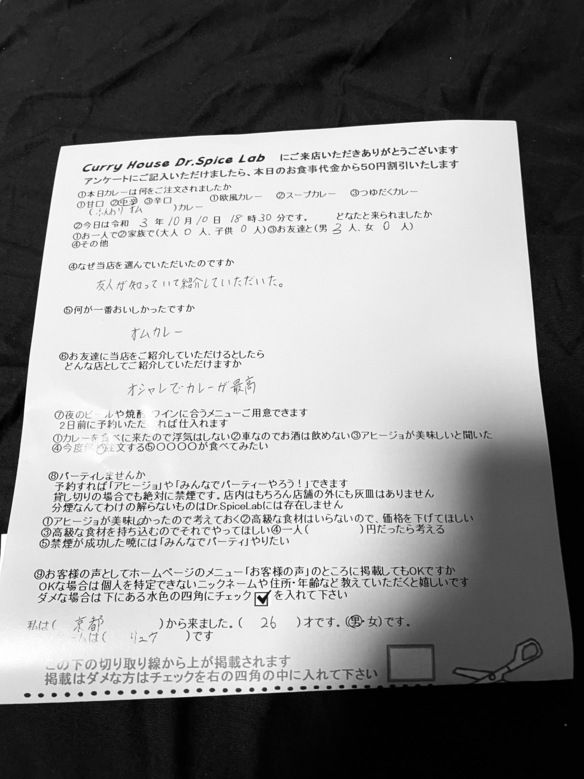 Curry House Dr.Spice Lab にご来店いただきありがとうございます
アンケートにご記入いただけましたら、本日のお食事代金から50円割引いたします
①本日カレーは何をご注文されましたか
①甘口 ②中辛 ③辛口 ①欧風カレー ②スープカレー ③つゆだくカレー
(ふんわりオム )カレー
②今日は令和 3 年 10 月 10 日 18 時 30 分です。 どなたと来られましたか
①お一人で②家族で(大人 0 人、子供 0 人)③お友達と(男 3 人、女 0 人)
④その他
④なぜ当店を選んでいただいたのですか
友人が知っていて紹介していただいた。
⑤何が一番おいしかったですか
オムカレー
⑥お友達に当店をご紹介していただけるとしたら
どんな店としてご紹介していただけますか
オシャレでカレーが最高
⑦夜のビールや焼酎 ワインに合うメニューご用意できます
2日前に予約いただ れば仕入れます
①カレーを食べに来たので浮気はしない②車なのでお酒は飲めない③アヒージョが美味しいと聞いた
④今度 注文する⑤〇〇〇〇が食べてみたい
⑧パーティしませんか
予約すれば「アヒージョ」や「みんなでパーティーやろう!」できます
貸し切りの場合でも絶対に禁煙です。店内はもちろん店舗の外にも灰皿はありません
分煙なんてわけの解らないものはDr.SpiceLabには存在しません
①アヒージョが美味しかったので考えておく②高級な食材はいらないので、価格を下げてほしい
③高級な食材を持ち込むのでそれでやってほしい④一人( )円だったら考える
⑤禁煙が成功した暁には「みんなでパーティ」やりたい
⑨お客様の声としてホームページのメニュー「お客様の声」のところに掲載してもOKですか
OKな場合は個人を特定できないニックネームや住所・年齢など教えていただくと嬉しいです
ダメな場合は下にある水色の四角にチェック を入れて下さい
私は( 京都 )から来ました。( 26 )才です。(男・女)です。
ムは( リュウ )です
この下の切り取り線から上が掲載されます
掲載はダメな方はチェックを右の四角の中に入れて下さい